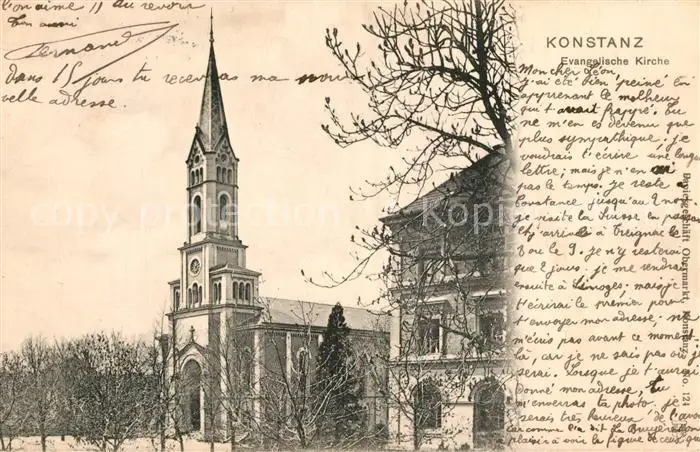 l'on aime !! au revoir
Ton ami
Fernand
dans 15 jours tu recevras ma nouvelle adresse.
KONSTANZ
Evangelische Kirche
Mon cher Léon
j'ai été bien peiné en
apprenant le malheur
qui t'avait frappé. Tu
ne m'en es devenu que
plus sympathique. je
voudrais t'écrire une longue
lettre; mais je n'en ai
pas le temps. Je reste à
Constance jusqu'au
je visite la Suisse en passant
j'arrive à Treignac le
8 ou le 9. je n'y resterai
que 2 jours. je me rendrai
ensuite à Limoges. mais je
t'écrirai le premier pour
t'envoyer mon adresse; ne
m'écris pas avant ce moment
là, car je ne sais pas où je
serai. Lorsque je t'aurai
donné mon adresse, tu
m'enverras ta photo. je
serais très heureux de l'avoir
car comme l'a dit la Bruyère
plaisir à voir la figure de ceux que
Obermarkt, Konstanz No. 124